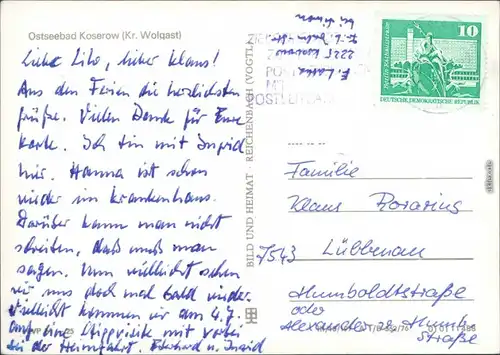 Ostseebad Koserow (Kr. Wolgast)
Liebe Lilo, lieber Klaus!
Aus den Ferien die herzlichsten
Grüße. Vielen Dank für Eure
Karte. Ich bin mit Ingrid
hier. Hanna ist schon
wieder im Krankenhaus.
Darüber kann man nicht
schreiben, das muß man
sagen. Nun vielleicht sehen
wir uns doch mal bald wieder.
Vielleicht kommen wir am 4.7.
auf eine Stippvisite mit vorbei
bei der Heimfahrt. Eberhard u. Ingrid
BILD UND HEIMAT REICHENBACH (VOGTL)
2225 Koserow
POSTLEITZAHL
10
DEUTSCHE DEMOKRATISCHE REPUBLIK
Familie
Klaus Rorarius
7543 Lübbenau
Humboldtstraße
oder
Alexander v. Humb.
Straße